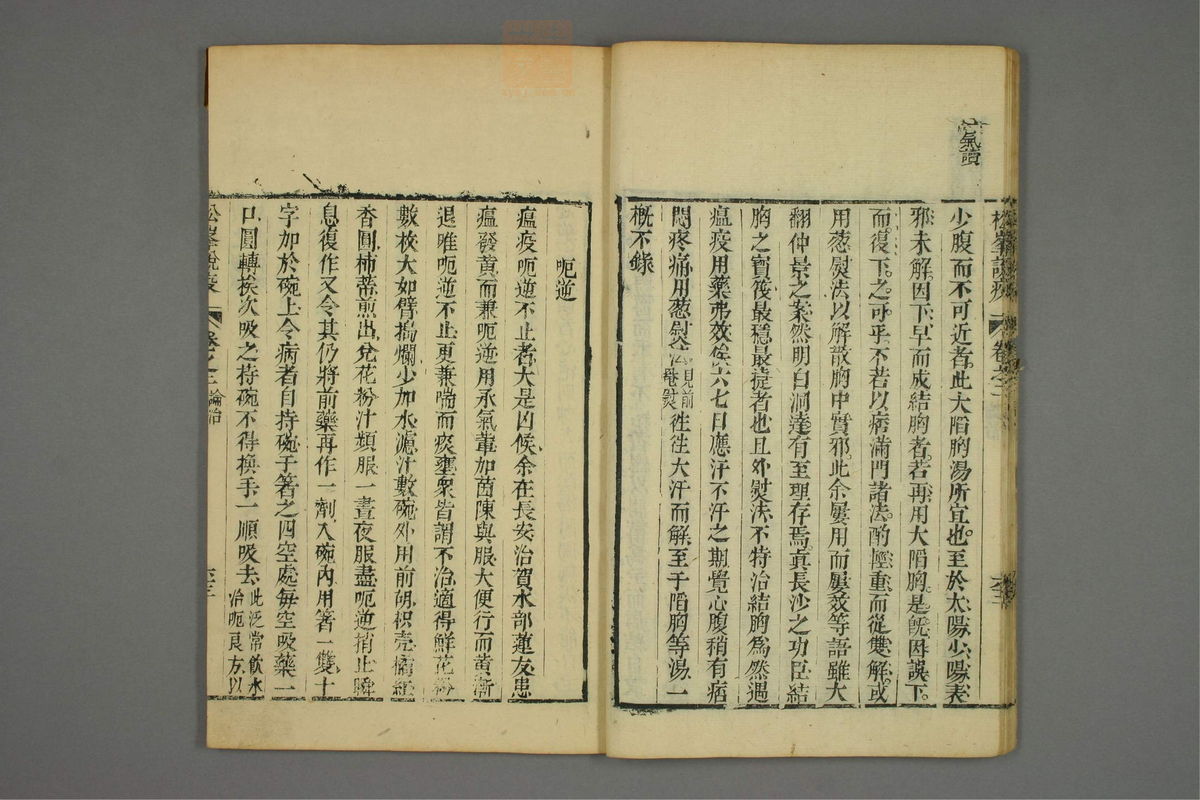 氣讀
松峯說疫 卷之二 六三
少腹而不可近者此大陷胸湯所宜也至於太陽少陽表
邪未解因下早而成結胸者若再用大陷胸是旣因誤下
而復下之可乎不若以痞滿門諸法酌輕重而從雙解或
用葱熨法以解散胸中實邪此余屢用而屢效等語雖大
翻仲景之案然明白洞達有至理存焉眞長沙之功臣結
胸之寶筏最穩最捷者也且外熨法不特治結胸爲然遇
瘟疫用藥弗效俟六七日應汗不汗之期覺心腹稍有痞
悶疼痛用葱熨法 見前 熨 徃徃大汗而解至于陷胸等湯一
槪不錄
呃逆
瘟疫呃逆不止者大是凶候余在長安治賀水部蓮友患
瘟發黃而兼呃逆用承氣輩加茵陳與服大便行而黃漸
退唯呃逆不止更兼喘而痰壅衆皆謂不治適得鮮花粉
數枝大如臂搗爛少加水濾汁數碗外用前胡枳壳橘紅
香圓柿蒂煎出兌花粉汁頻服一晝夜服盡呃逆稍止瞬
息復作又令其仍將前藥再作一劑入碗內用箸一雙十
字加於碗上令病者自持碗于箸之四空處每空吸藥一
口圓轉挨次吸之持碗不得換手一順吸去 此泛常飲水 治呃良方以
松峯說疫 卷之二 論治 六三